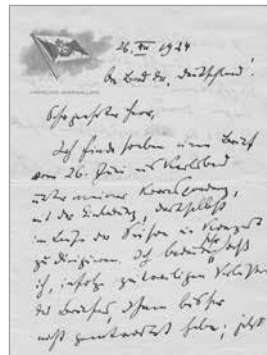 26. VII 1924
An Bord der "Deutschland".
Sehr geehrter Herr,
Ich finde soeben einen Brief
vom 26. Juni aus Karlsbad
unter meiner Korrespondenz,
mit der Einladung, daselbst
im Laufe der Saison ein Konzert
zu dirigieren. Ich bedaure sehr, daß
ich, infolge zeitweiligen Verlustes
des Briefes, Ihnen bisher
nicht geantwortet habe; jetzt